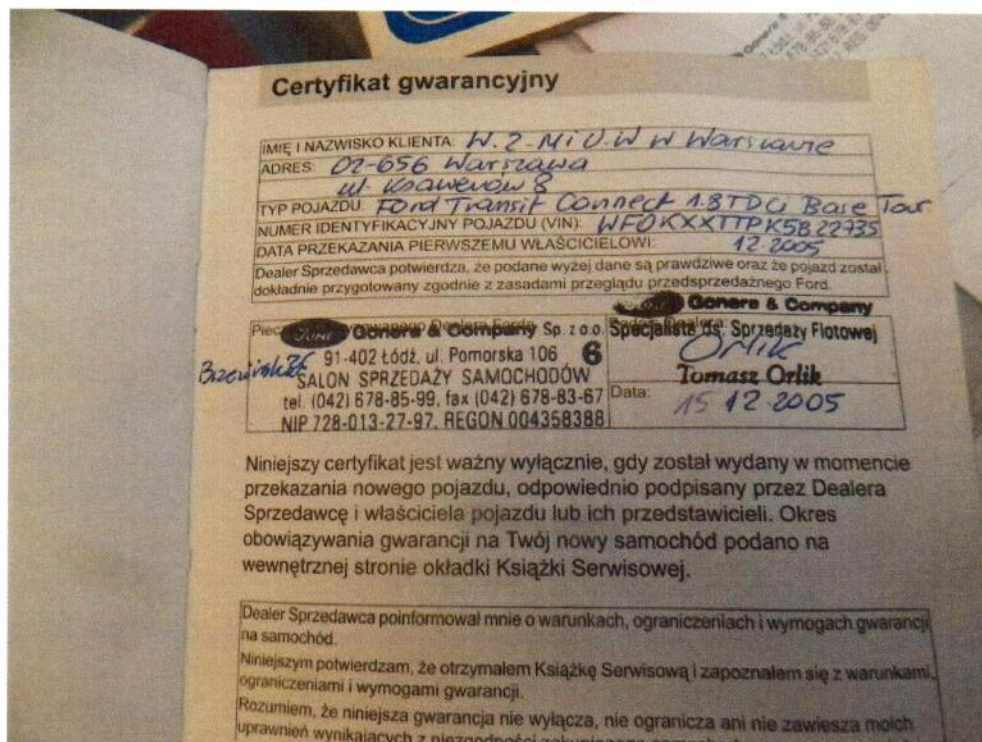 Certyfikat gwarancyjny
IMIĘ I NAZWISKO KLIENTA: W.Z.MiU.W w Warszawie
ADRES: 02-656 Warszawa
ul. Ksawerów 8
TYP POJAZDU: Ford Transit Connect 1.8TDCi Base Tour
NUMER IDENTYFIKACYJNY POJAZDU (VIN): WF0KXXTTPK5B22735
DATA PRZEKAZANIA PIERWSZEMU WŁAŚCICIELOWI: 12.2005
Dealer Sprzedawca potwierdza, że podane wyżej dane są prawdziwe oraz że pojazd został
dokładnie przygotowany zgodnie z zasadami przeglądu przedsprzedażnego Ford.
Gonera & Company
Ford Gonera & Company Sp. z o.o. Specjalista ds. Sprzedaży Flotowej
91-402 Łódź, ul. Pomorska 106 6 Orlik
SALON SPRZEDAŻY SAMOCHODÓW Tomasz Orlik
tel. (042) 678-85-99, fax (042) 678-83-67 Data: 15 12.2005
NIP 728-013-27-97, REGON 004358388
Niniejszy certyfikat jest ważny wyłącznie, gdy został wydany w momencie
przekazania nowego pojazdu, odpowiednio podpisany przez Dealera
Sprzedawcę i właściciela pojazdu lub ich przedstawicieli. Okres
obowiązywania gwarancji na Twój nowy samochód podano na
wewnętrznej stronie okładki Książki Serwisowej.
Dealer Sprzedawca poinformował mnie o warunkach, ograniczeniach i wymogach gwarancji
na samochód.
Niniejszym potwierdzam, że otrzymałem Książkę Serwisową i zapoznałem się z warunkami,
ograniczeniami i wymogami gwarancji.
Rozumiem, że niniejsza gwarancja nie wyłącza, nie ogranicza ani nie zawiesza moich
uprawnień wynikających z niezgodności